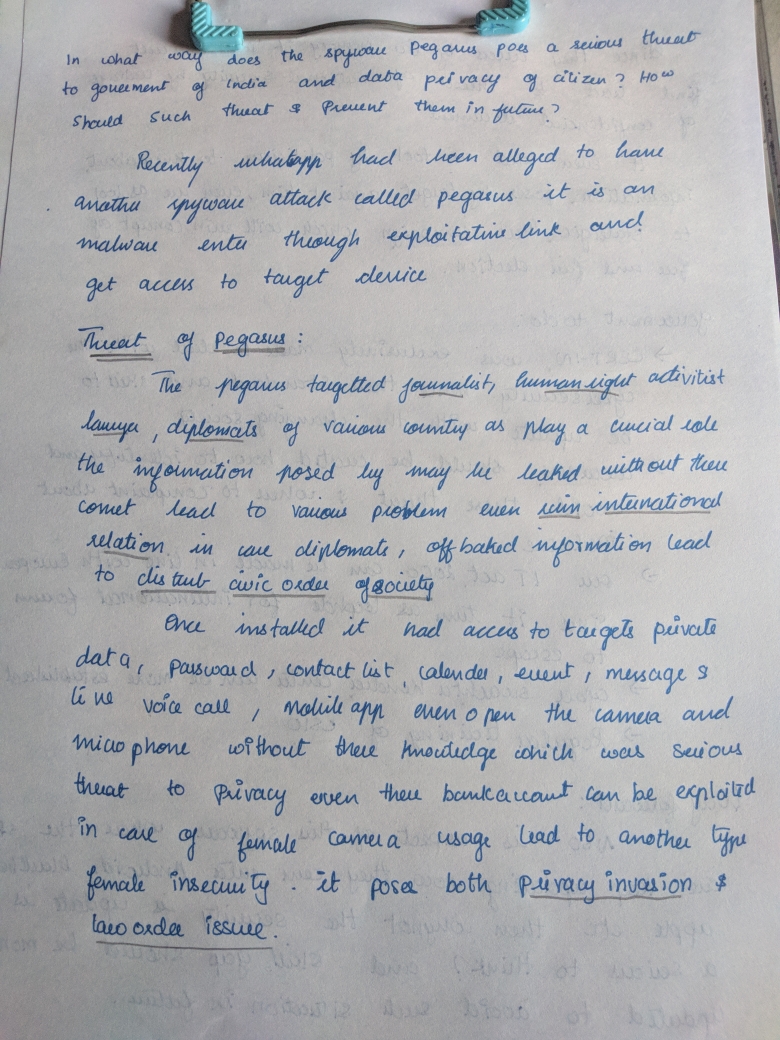 In what way does the spyware pegasus poes a serious threat
to goverment of India and data privacy of citizen? How
should such threat & Prevent them in future?
Recently whatapp had been alleged to have
another spyware attack called pegasus it is an
malware enter through exploitative link and
get access to target device
Threat of Pegasus:
The pegasus targetted journalist, human right activitist
lawyer, diplomats of various country as play a crucial role
the information posed by may be leaked without there
lead to various problem even ruin international
relation in case diplomats, off baked information lead
to distrub civic order of society
Once installed it had access to targets private
data, password, contact list, calender, event, message &
live voice call, mobile app even open the camera and
microphone without there knowledge which was serious
threat to privacy even there bank account can be exploited
in case of female camera usage lead to another type
female insecurity. it poses both privacy invasion &
law order issue.